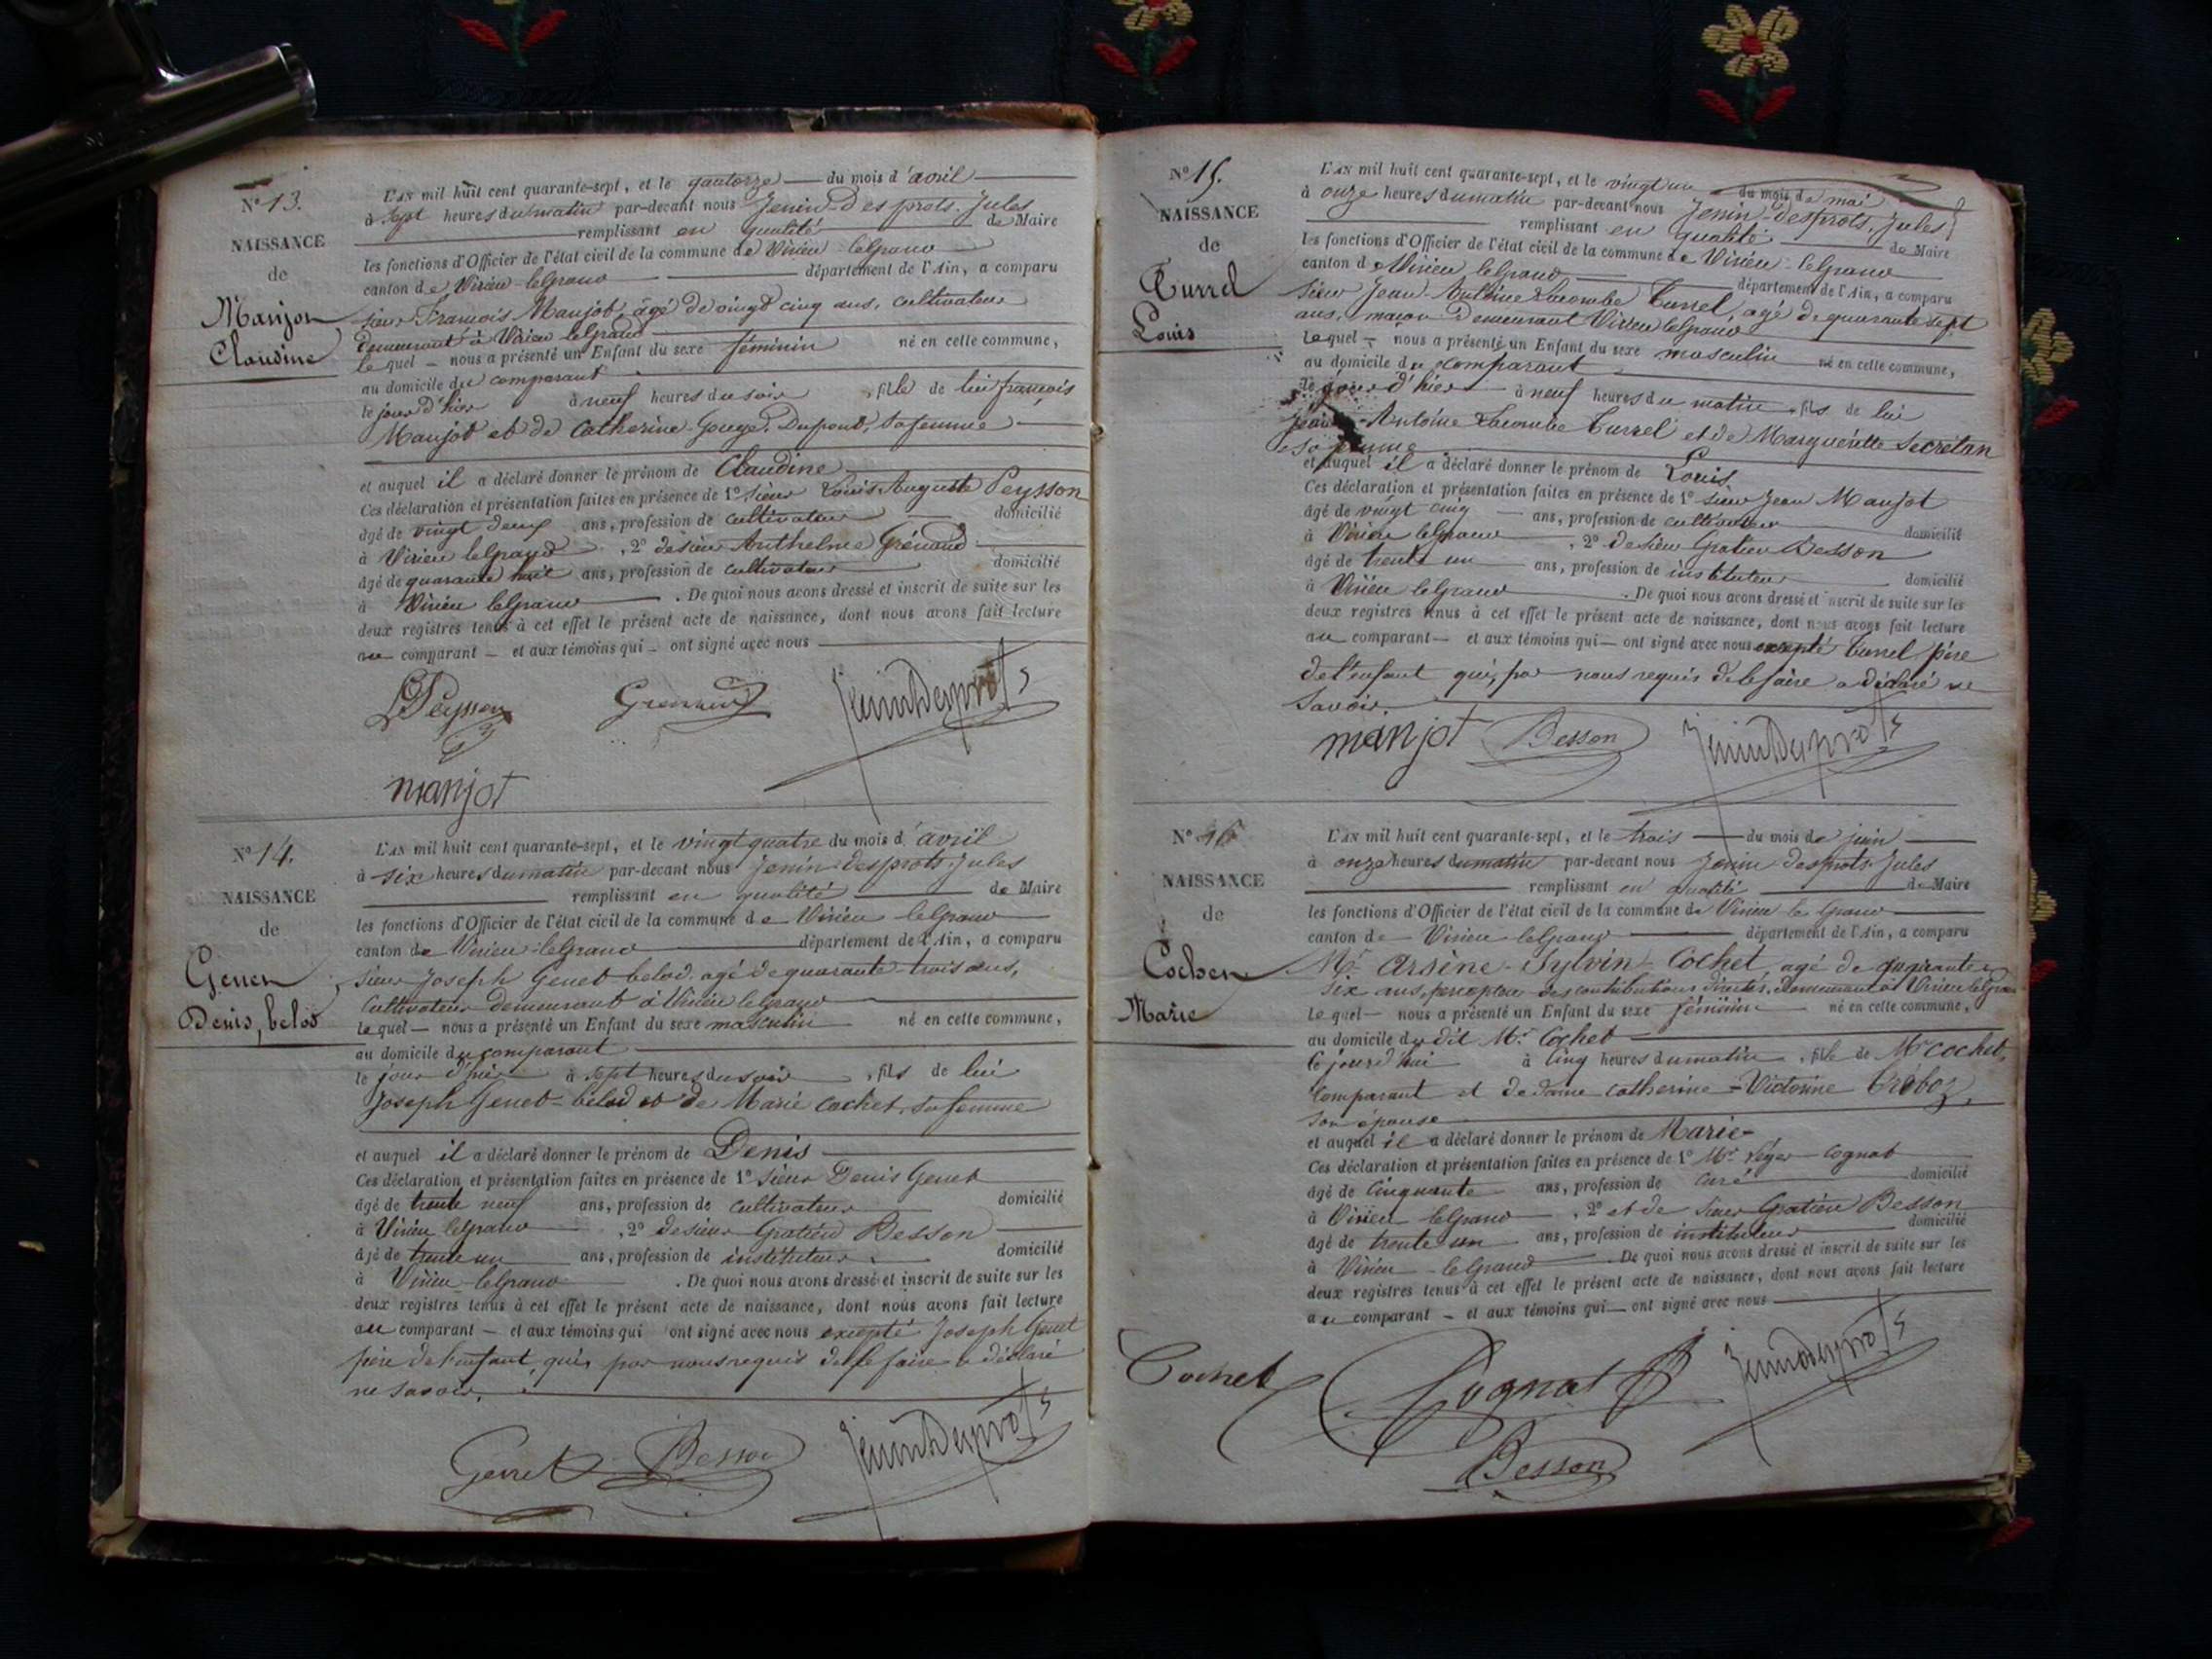 Nº 13.
NAISSANCE
de
Manjot
Claudine
L'AN mil huit cent quarante-sept, et le quatorze du mois d'avril
à sept heures du matin par-devant nous Jenin-Desprots, Jules
remplissant en qualité de Maire
les fonctions d'Officier de l'état civil de la commune de Virieu-leGrand
canton de Virieu-leGrand département de l'Ain, a comparu
sieur François Manjot, âgé de vingt cinq ans, cultivateur
demeurant à Virieu leGrand
lequel nous a présenté un Enfant du sexe féminin né en cette commune,
au domicile du comparant
le jour d'hier à neuf heures du soir, fille de lui françois
Manjot et de Catherine Dupont, sa femme
et auquel il a déclaré donner le prénom de Claudine
Ces déclaration et présentation faites en présence de 1º sieur Louis Auguste Peysson
âgé de vingt deux ans, profession de cultivateur domicilié
à Virieu leGrand, 2º de sieur Anthelme Grénaud
âgé de quarante huit ans, profession de cultivateur domicilié
à Virieu leGrand. De quoi nous avons dressé et inscrit de suite sur les
deux registres tenus à cet effet le présent acte de naissance, dont nous avons fait lecture
au comparant et aux témoins qui ont signé avec nous
LPeysson Grenaud JeninDesprots
manjot
Nº 14.
NAISSANCE
de
Genet
Denis, belod
L'AN mil huit cent quarante-sept, et le vingt quatre du mois d'avril
à six heures du matin par-devant nous Jenin-desprots, Jules
remplissant en qualité de Maire
les fonctions d'Officier de l'état civil de la commune de Virieu leGrand
canton de Virieu-leGrand département de l'Ain, a comparu
sieur Joseph Genet-belod, agé de quarante-trois ans,
cultivateur demeurant à Virieu leGrand
lequel nous a présenté un Enfant du sexe masculin né en cette commune,
au domicile du comparant
le jour d'hier à sept heures du soir, fils de lui
Joseph Genet-belod et de Marie Cochet, sa femme
et auquel il a déclaré donner le prénom de Denis
Ces déclaration et présentation faites en présence de 1º sieur Denis Genet
âgé de trente neuf ans, profession de cultivateur domicilié
à Virieu leGrand, 2º de sieur Gratien Besson
âgé de trente un ans, profession de instituteur domicilié
à Virieu-leGrand. De quoi nous avons dressé et inscrit de suite sur les
deux registres tenus à cet effet le présent acte de naissance, dont nous avons fait lecture
au comparant et aux témoins qui ont signé avec nous excepté Joseph Genet
père de l'enfant qui, par nous requis de le faire a déclaré
ne savoir.
Genet Besson JeninDesprots
Nº 15.
NAISSANCE
de
Turrel
Louis
L'AN mil huit cent quarante-sept, et le vingt un du mois de mai
à onze heures du matin par-devant nous Jenin-desprots, Jules
remplissant en qualité de Maire
les fonctions d'Officier de l'état civil de la commune de Virieu-leGrand
canton de Virieu leGrand département de l'Ain, a comparu
sieur Jean-Antoine Lacombe Turrel, agé de quarante sept
ans, maçon demeurant Virieu leGrand
lequel nous a présenté un Enfant du sexe masculin né en cette commune,
au domicile du comparant
le jour d'hier à neuf heures du matin, fils de lui
Jean-Antoine Lacombe Turrel et de Marguerite Secretan
sa femme
et auquel il a déclaré donner le prénom de Louis
Ces déclaration et présentation faites en présence de 1º sieur Jean Manjot
âgé de vingt cinq ans, profession de cultivateur domicilié
à Virieu leGrand, 2º de sieur Gratien Besson
âgé de trente un ans, profession de instituteur domicilié
à Virieu leGrand. De quoi nous avons dressé et inscrit de suite sur les
deux registres tenus à cet effet le présent acte de naissance, dont nous avons fait lecture
au comparant et aux témoins qui ont signé avec nous excepté Turrel père
de l'enfant qui, par nous requis de le faire a déclaré ne
savoir.
manjot Besson JeninDesprots
Nº 16
NAISSANCE
de
Cochet
Marie
L'AN mil huit cent quarante-sept, et le trois du mois de juin
à onze heures du matin par-devant nous Jenin-desprots Jules
remplissant en qualité de Maire
les fonctions d'Officier de l'état civil de la commune de Virieu le Grand
canton de Virieu leGrand département de l'Ain, a comparu
Mr Arsène-Sylvin Cochet, agé de quarante
six ans, percepteur des contributions directes, demeurant à Virieu leGrand
lequel nous a présenté un Enfant du sexe féminin né en cette commune,
au domicile du dit Mr Cochet
le jourd'hui à cinq heures du matin, fille de Mr Cochet,
Comparant et de dame Catherine-Victorine Tréboz,
son épouse
et auquel il a déclaré donner le prénom de Marie
Ces déclaration et présentation faites en présence de 1º Mr Léger Cognat
âgé de cinquante ans, profession de curé domicilié
à Virieu leGrand, 2º et de sieur Gratien Besson
âgé de trente un ans, profession de instituteur domicilié
à Virieu-leGrand. De quoi nous avons dressé et inscrit de suite sur les
deux registres tenus à cet effet le présent acte de naissance, dont nous avons fait lecture
au comparant et aux témoins qui ont signé avec nous
Cochet Cognat JeninDesprots
Besson